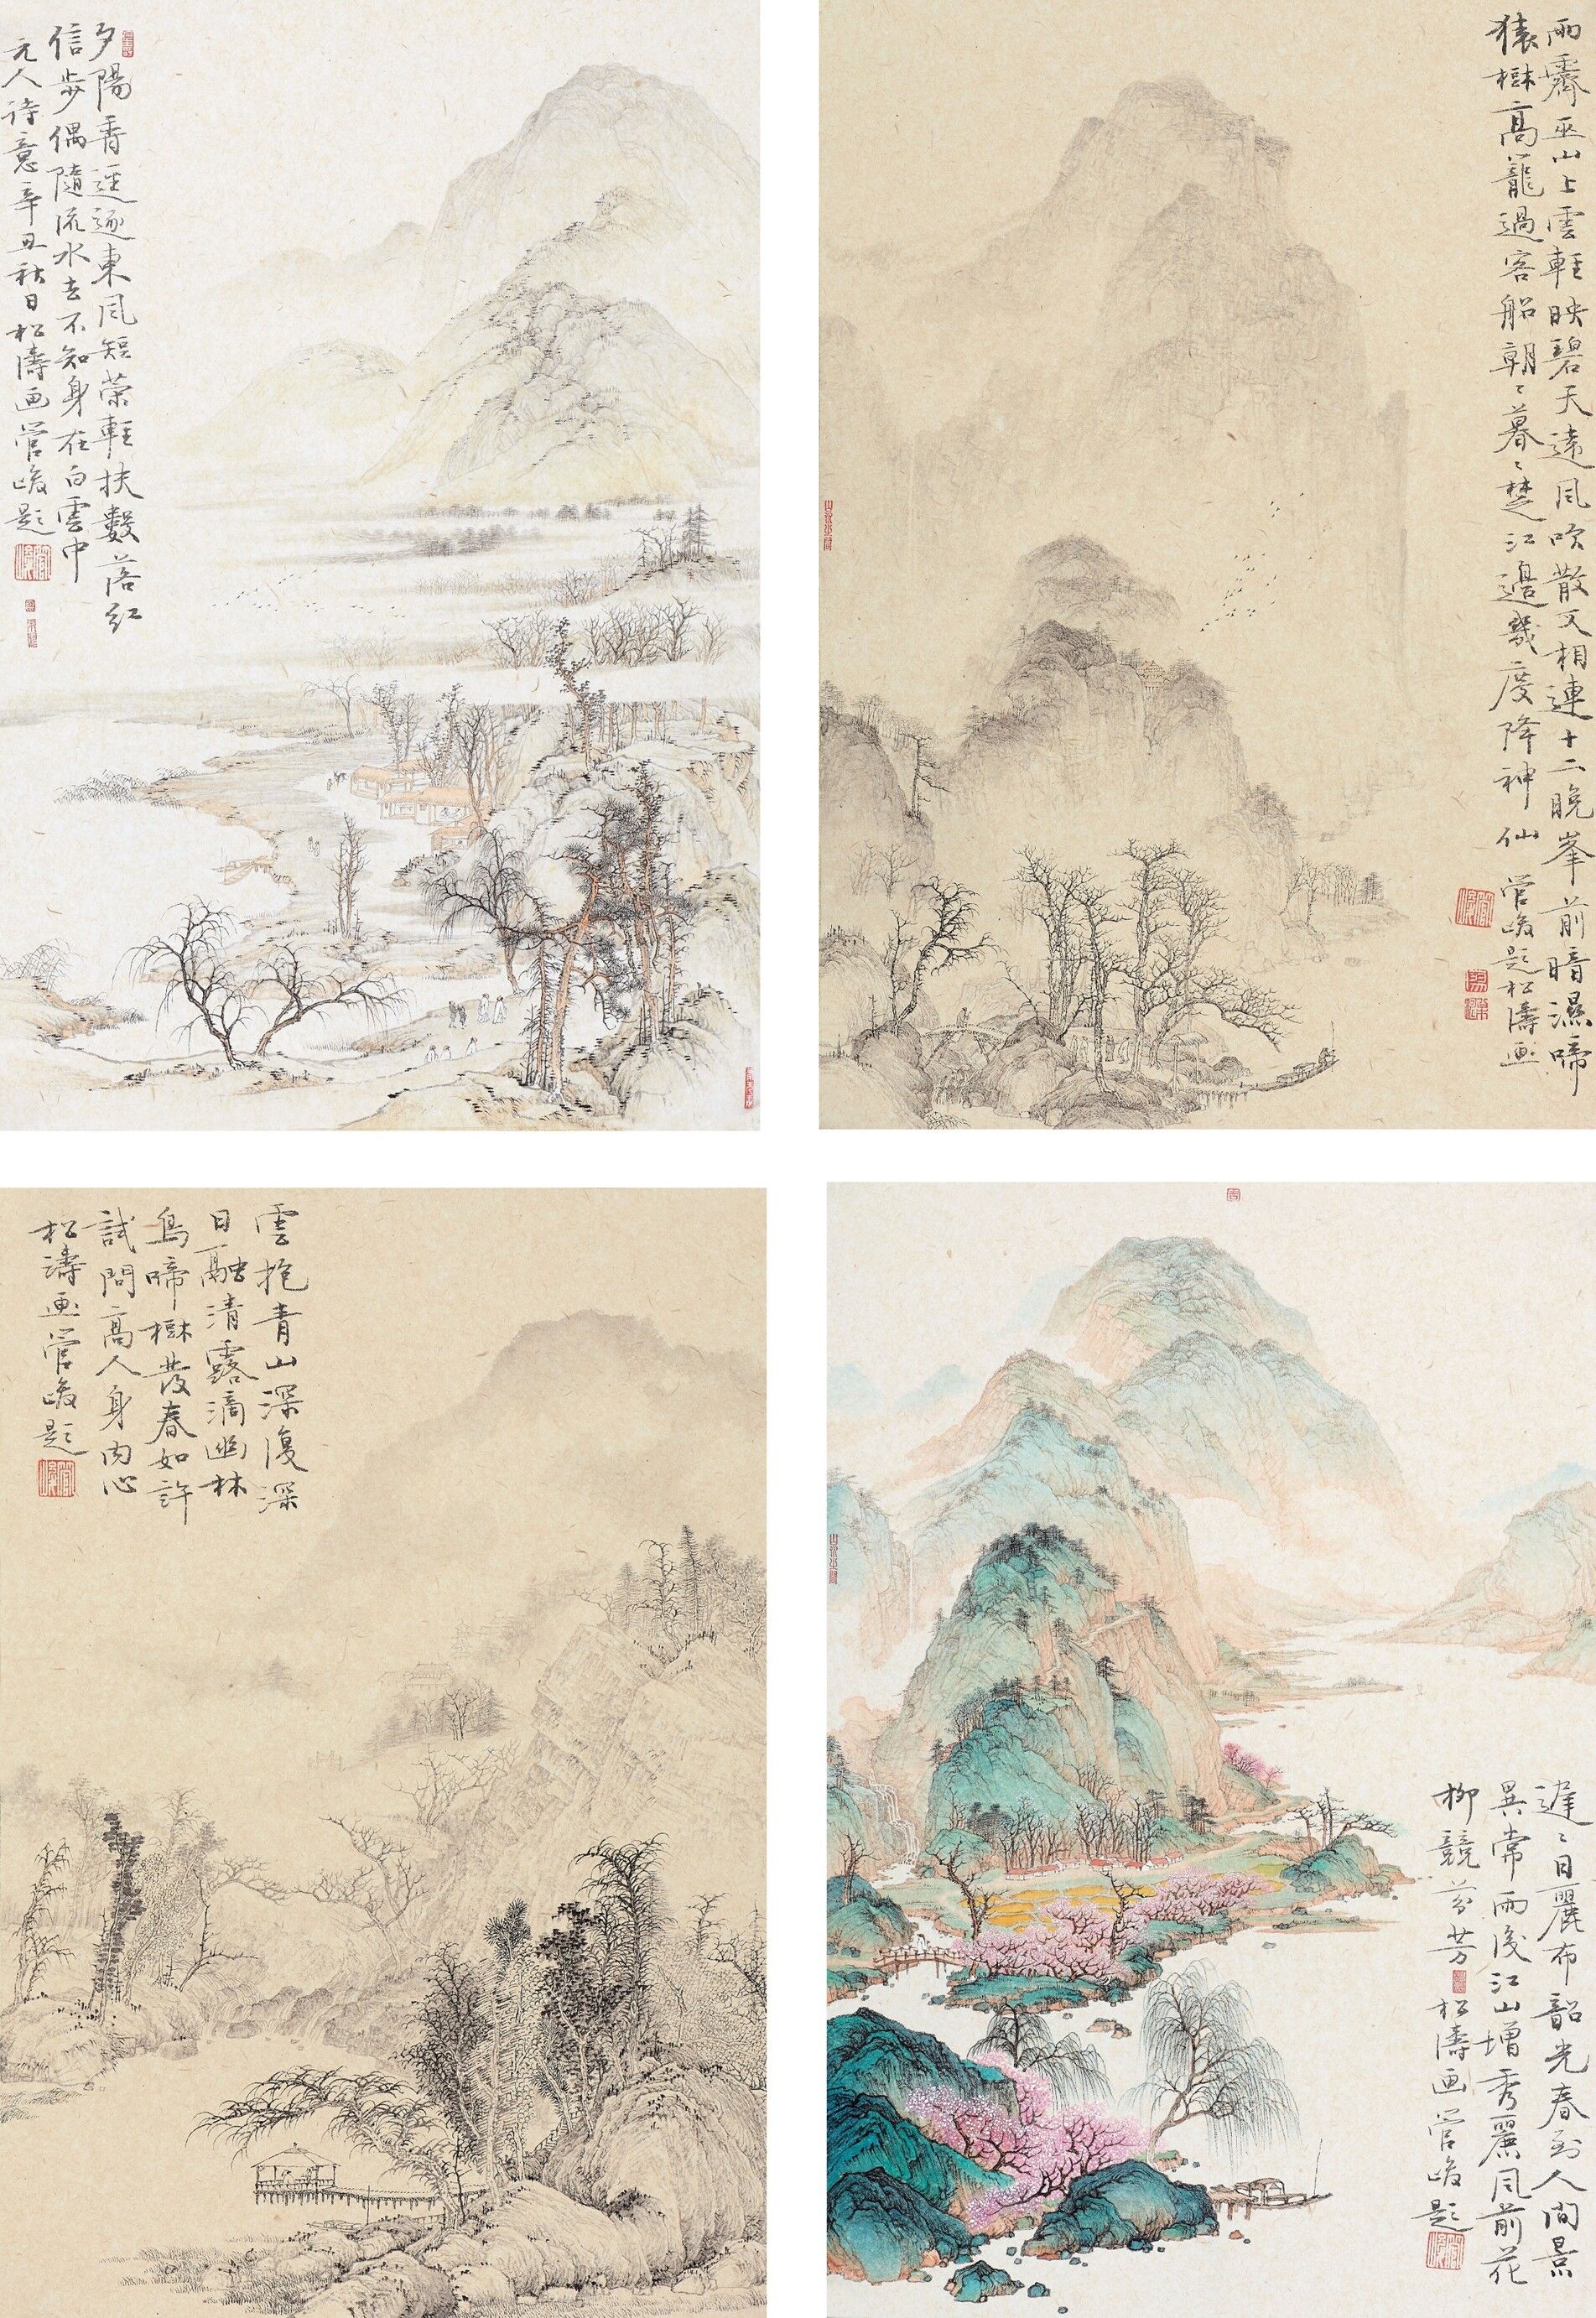 夕陽香逕逐東風短策輕扶數落紅
信步偶隨流水去不知身在白雲中
元人詩意辛丑秋日松濤画管峻題
雨霽巫山上雲輕映碧天遠風吹散又相連十二晚峯前暗濕啼
猿樹高籠過客船朝〻暮〻楚江邊幾度降神仙 管峻題松濤画
雲抱青山深復深
日融清露滴幽林
鳥啼樹茂春如許
試問高人身内心
松濤画管峻題
遲〻日麗布韶光春到人間景
異常雨後江山增秀麗風前花
柳競芬芳 松濤画管峻題